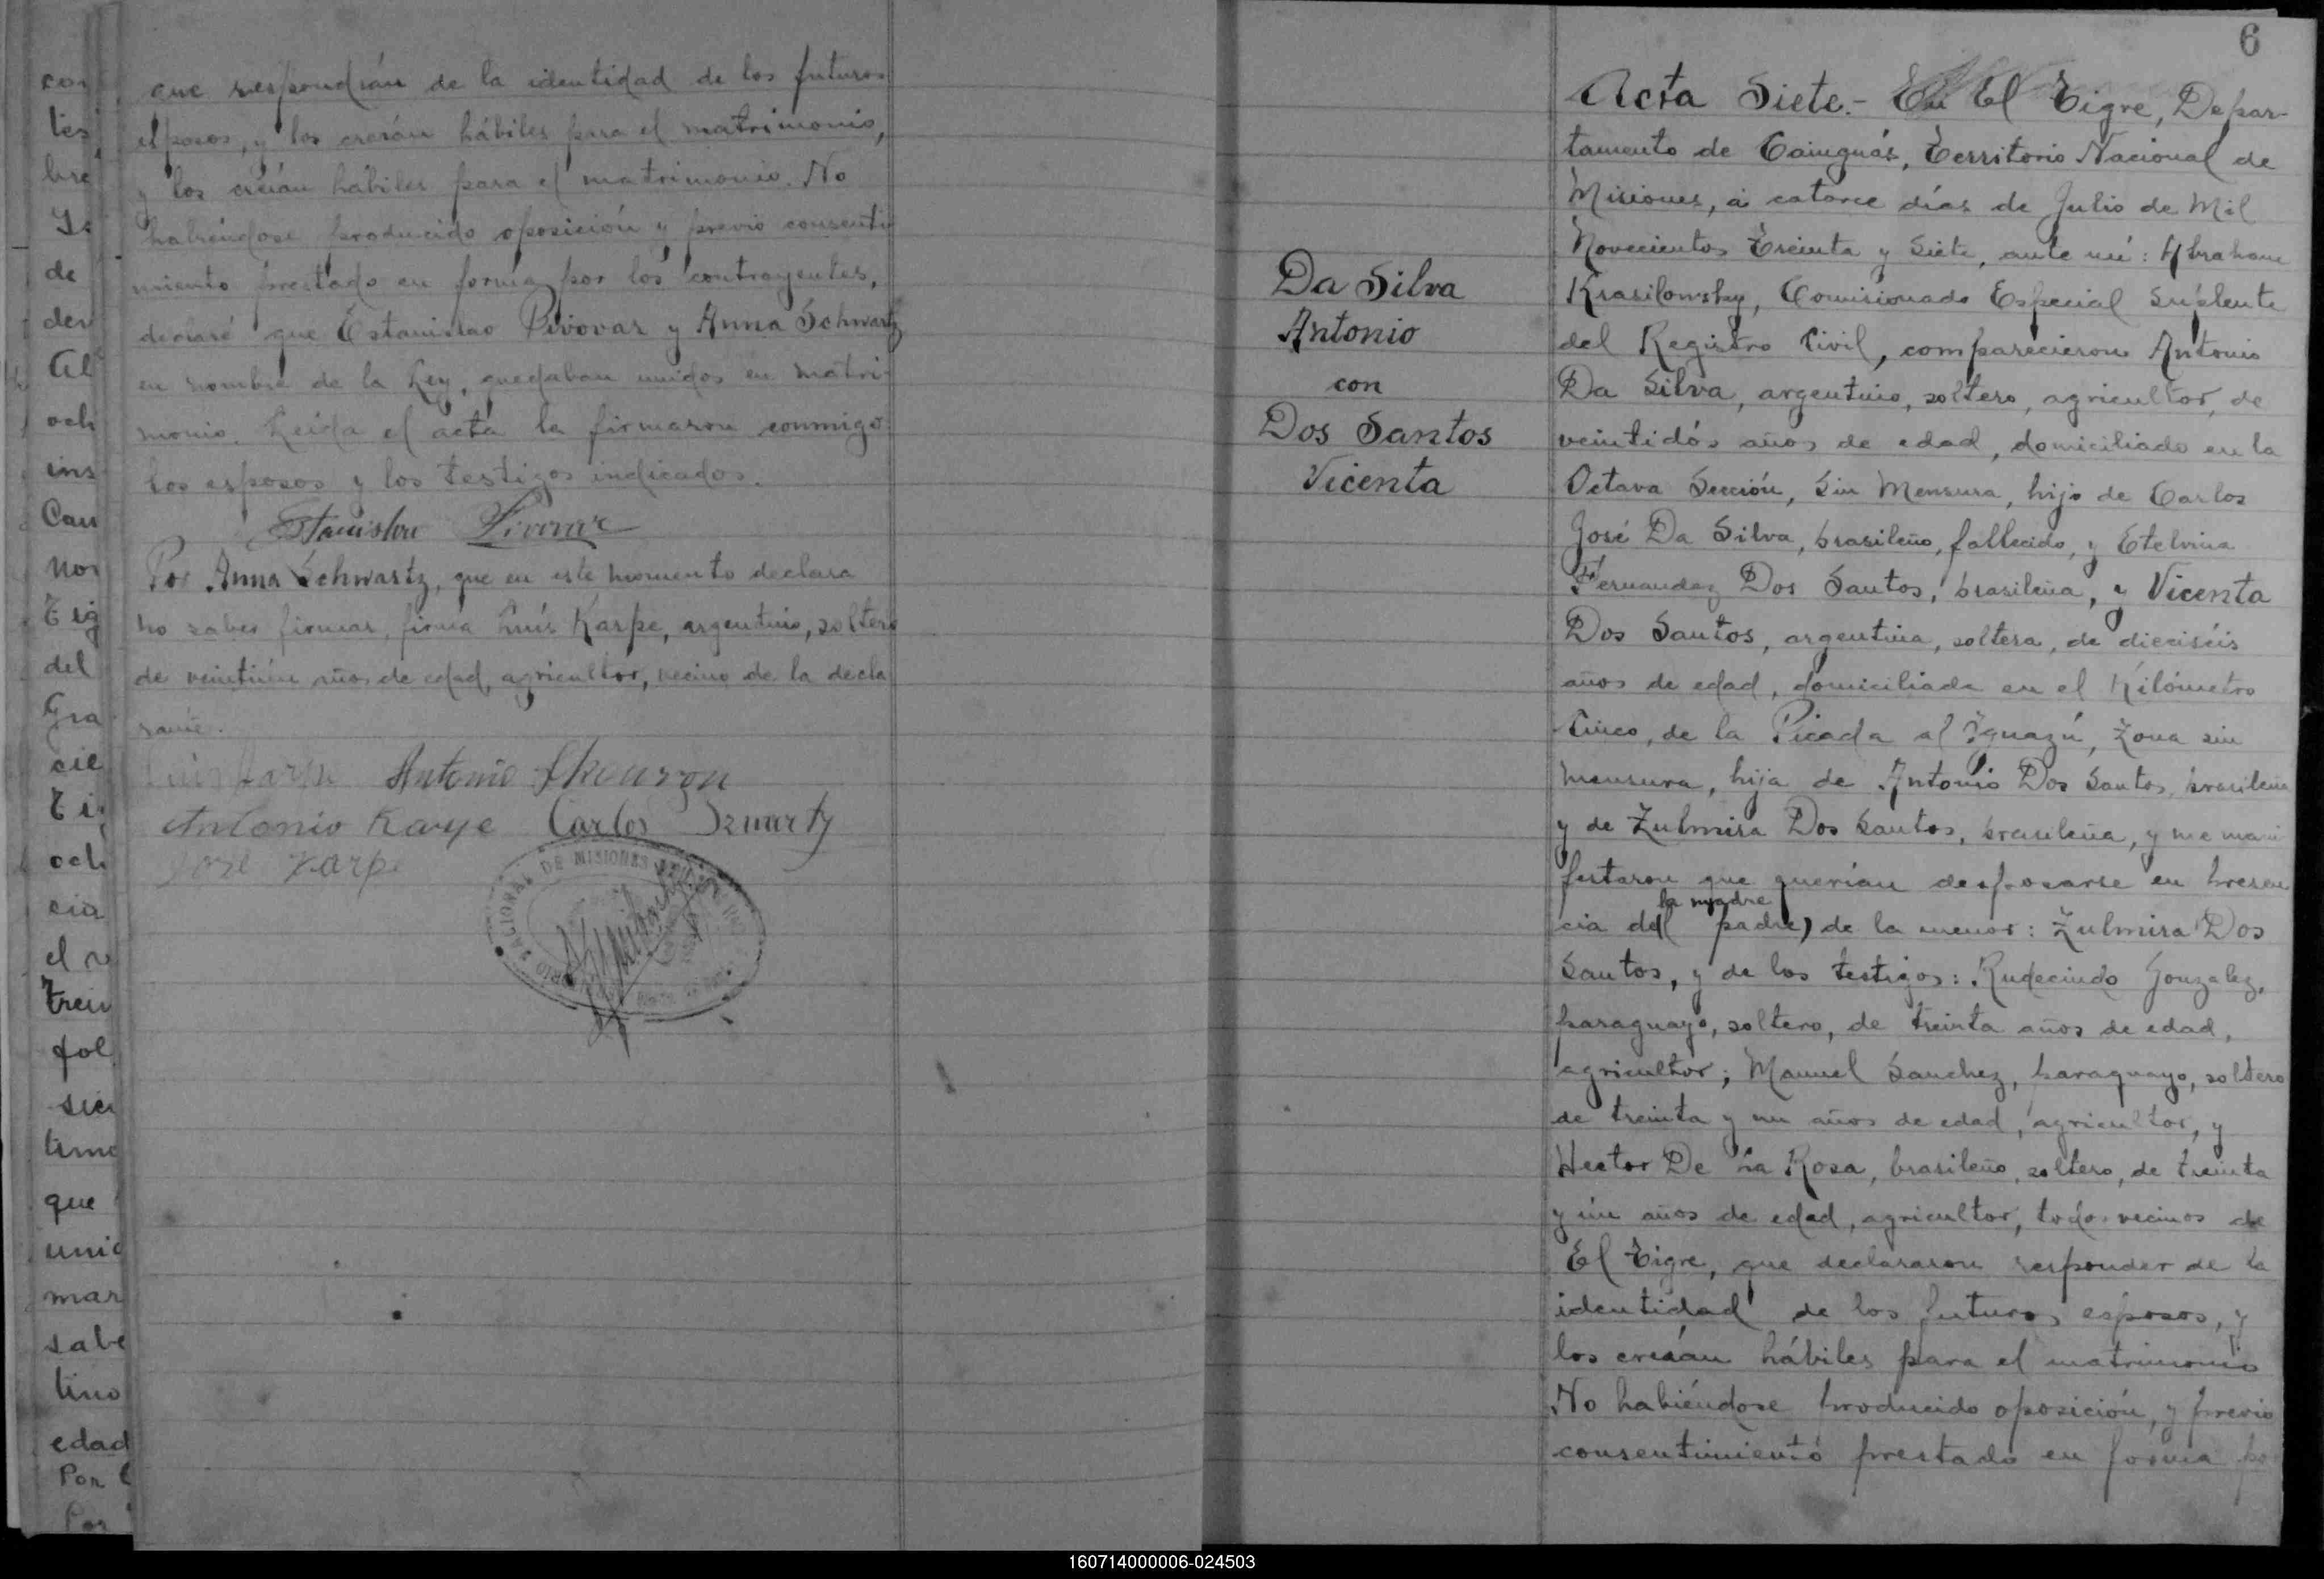 que respondían de la identidad de los futuros
esposos, y los creían hábiles para el matrimonio,
y los creían hábiles para el matrimonio. No
habiéndose producido oposición y previo consenti
miento prestado en forma por los contrayentes,
declaré que Estanislao Pivovar y Anna Schwartz
en nombre de la Ley, quedaban unidos en matri-
monio. Leída el acta la firmaron conmigo
los esposos y los testigos indicados.
Por Anna Schwartz, que en este momento declara
no saber firmar, firma Luís Karpe, argentino, soltero
de veintiún años de edad, agricultor, vecino de la decla
rante.
Antonio
Antonio Carlos
José Karpe
DE MISIONES
6
Acta Siete.- En El Tigre, Depar-
tamento de Cainguás, Territorio Nacional de
Misiones, á catorce días de Julio de Mil
Novecientos Treinta y Siete, ante mí: Abraham
Krasilowsky, Comisionado Especial Suplente
del Registro Civil, comparecieron Antonio
Da Silva, argentino, soltero, agricultor, de
veintidós años de edad, domiciliado en la
Octava Sección, Sin Mensura, hijo de Carlos
José Da Silva, brasileño, fallecido, y Etelvina
Fernandez Dos Santos, brasileña, y Vicenta
Dos Santos, argentina, soltera, de dieciséis
años de edad, domiciliada en el Kilómetro
Cinco, de la Picada al Iguazú, Zona sin
mensura, hija de Antonio Dos Santos, brasileño
y de Zulmira Dos Santos, brasileña, y me mani
festaron que querían desposarse en presen
la madre
cia de( padre) de la menor: Zulmira Dos
Santos, y de los testigos: Rudecindo Gonzalez,
paraguayo, soltero, de treinta años de edad,
agricultor; Manuel Sanchez, paraguayo, soltero
de treinta y un años de edad, agricultor, y
Hector De La Rosa, brasileño, soltero, de treinta
y un años de edad, agricultor, todos vecinos de
El Tigre, que declararon responder de la
identidad de los futuros esposos, y
los creían hábiles para el matrimonio
No habiéndose producido oposición, y previo
consentimiento prestado en forma po
Da Silva
Antonio
con
Dos Santos
Vicenta
160714000006-024503